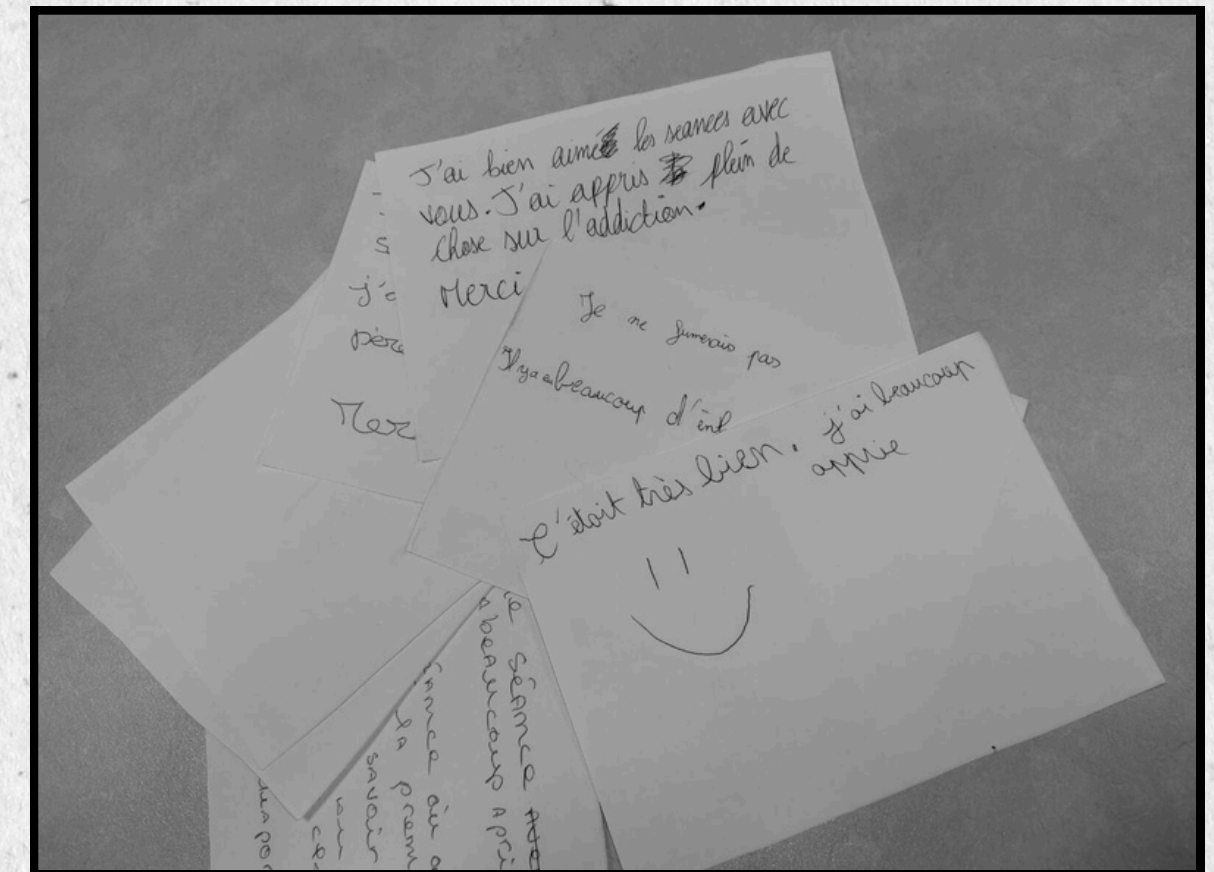 J'ai bien aimé les seances avec
vous. J'ai appris plein de
chose sur l'addiction.
Merci
Je ne fumerais pas
Il y a eu beaucoup d'int
C'était très bien. j'ai beaucoup
apprie
s
j'a
père
Mer
séance ave
beaucoup appri
séance où
la prem
savoir
ce